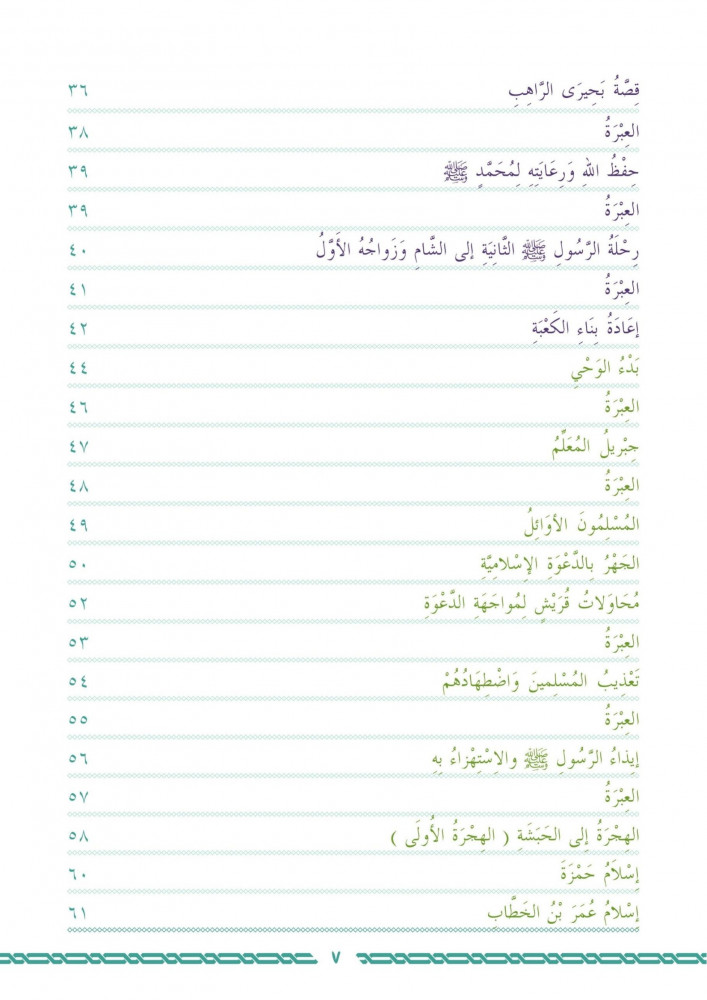 قِصَّةُ بَحِيرَى الرَّاهِبِ ٣٦
العِبْرَةُ ٣٨
حِفْظُ اللهِ وَرِعَايَتِهِ لِمُحَمَّدٍ ﷺ ٣٩
العِبْرَةُ ٣٩
رِحْلَةُ الرَّسُولِ ﷺ الثَّانِيَةِ إلى الشَّامِ وَزَواجُهُ الأَوَّلُ ٤٠
العِبْرَةُ ٤١
إعَادَةُ بِنَاءِ الكَعْبَةِ ٤٢
بَدْءُ الوَحْيِ ٤٤
العِبْرَةُ ٤٦
جِبْرِيلُ المُعَلِّمُ ٤٧
العِبْرَةُ ٤٨
المُسْلِمُونَ الأوَائِلُ ٤٩
الجَهْرُ بِالدَّعْوَةِ الإِسْلاميَّةِ ٥٠
مُحَاوَلاتُ قُرَيْشٍ لِمُواجَهَةِ الدَّعْوَةِ ٥٢
العِبْرَةُ ٥٣
تَعْذِيبُ المُسْلِمينَ وَاضْطِهَادُهُمْ ٥٤
العِبْرَةُ ٥٥
إيذاءُ الرَّسُولِ ﷺ والاِسْتِهْزاءُ بِهِ ٥٦
العِبْرَةُ ٥٧
الهِجْرَةُ إلى الحَبَشَةِ ( الهِجْرَةُ الأُولَى ) ٥٨
إِسْلاَمُ حَمْزَةَ ٦٠
إسْلامُ عُمَرَ بْنُ الخَطَّابِ ٦١
٧